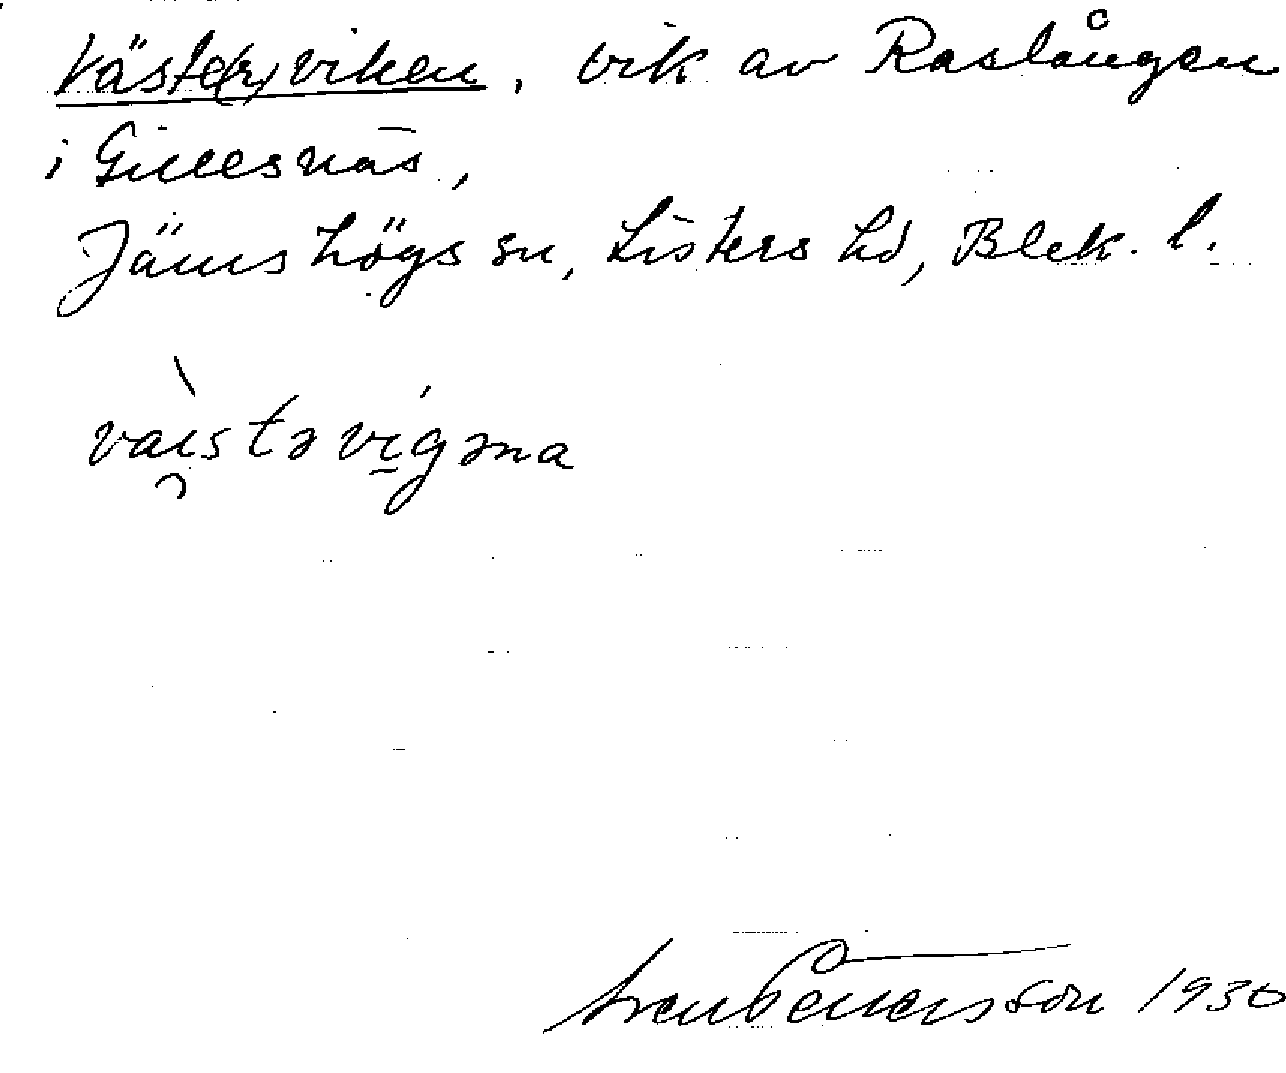 Väste(r)viken, vik av Raslången
i Gillesnäs,
Jämshögs sn, Listers hd, Blek. l.
vaistəvigəna
Sven Benson 1930